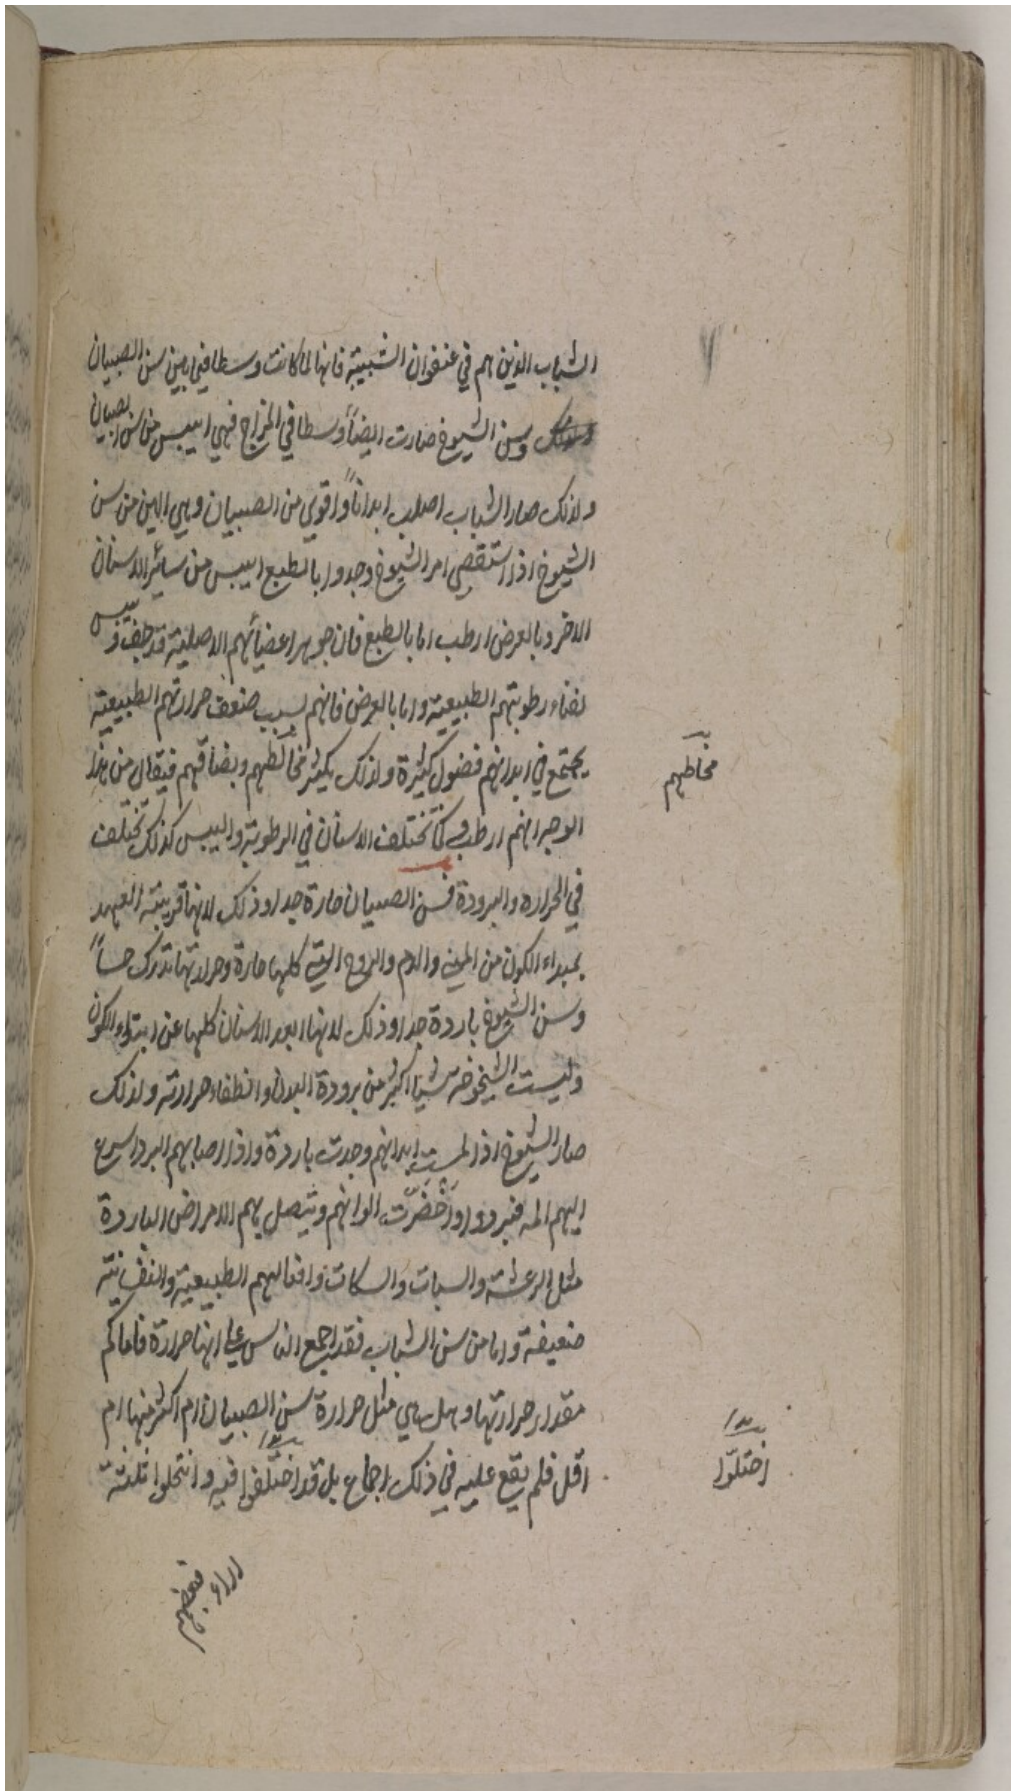 الشباب الذين هم في عنفوان الشبيبة فانها لما كانت وسطا فيما بين سن الصبيان
وسن الشيوخ صارت ايضاً وسطا في المزاج فهي ايبس من سن الصبيان
ولذلك صار الشباب اصلب ابداناً واقوي من الصبيان وهي الين من سن
الشيوخ اذا استقصي امر الشيوخ وجدوا بالطبع ايبس من سائر الاسنان
الاخر وبالعرض ارطب اما بالطبع فان جوهر اعضائهم الاصلية قد جفت ويبس
لفناء رطوبتهم الطبيعية واما بالعرض فانهم بسبب ضعف حرارتهم الطبيعية
يجتمع في ابدانهم فضول كثيرة ولذلك يكثر مخالطهم وبضاقهم فيقال من هذا
مخاطهم
الوجه انهم ارطب وكما تختلف الاسنان في الرطوبة واليبس كذلك تختلف
في الحراره والبرودة فسن الصبيان حارة جدا وذلك لانها قريبة العهد
بمبداء الكون من المني والدم والروح التي كلها حارة وحرارتها تدرك حساً
وسن الشيوخ باردة جدا وذلك لانها ابعد الاسنان كلها عن ابتداء الكون
وليست الشيخوخة شيئا اكثر من برودة البدن وانطفاء حرارته ولذلك
صار الشيوخ اذا لمست ابدانهم وجدت باردة واذا اصابهم البرد اسرع
اليهم المه فبردوا واخضرّت الوانهم ويتصل بهم الامراض الباردة
مثل الرعشة والسبات والسكات وافعالهم الطبيعية والنفسانية
ضعيفة واما من سن الشباب فقد اجمع الناس علي انها حرارة فاما كم
مقدار حرارتها وهل هي مثل حرارة سن الصبيان ام اكثر منها ام
اقل فلم يقع عليه في ذلك اجماع بل قد اختلفوا فيه وانتحلوا ثلثة
اختلّوا
اراء فبعضهم